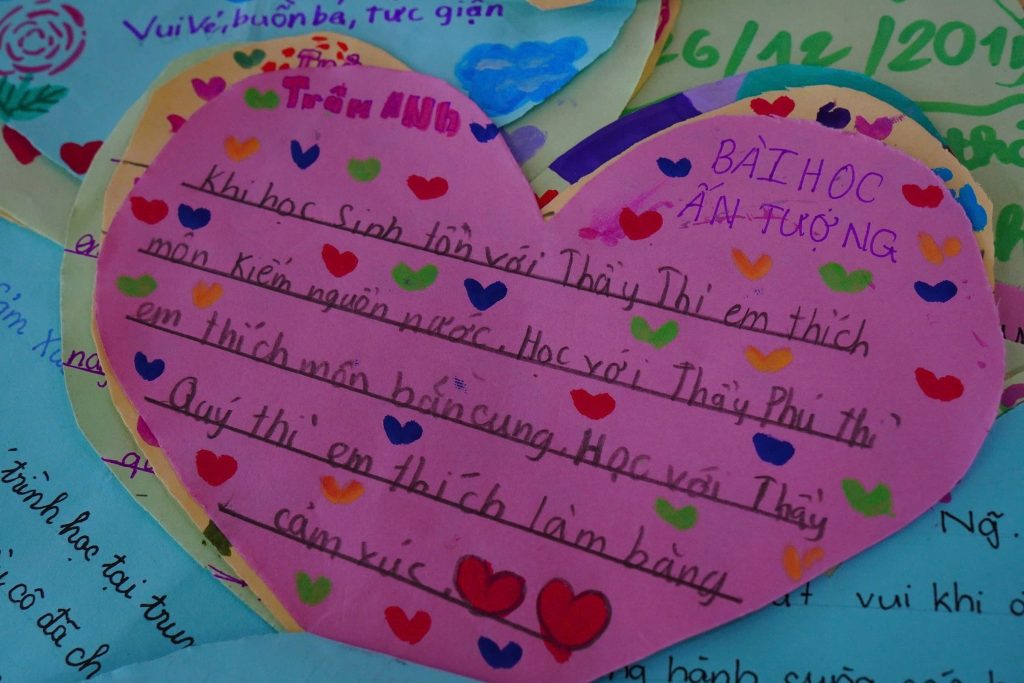 Vui vẻ, buồn bã, tức giận
26/12/201
Trâm ANh
BÀI HỌC
ẤN TƯỢNG
Khi học sinh tồn với Thầy Thi em thích
môn kiếm nguồn nước. Học với Thầy Phú thì
em thích môn bắn cung. Học với Thầy
Quý thì em thích làm bảng
cảm xúc.
trình học tại trun
cô đã ch
Ng̃.
vui khi
hành cùng